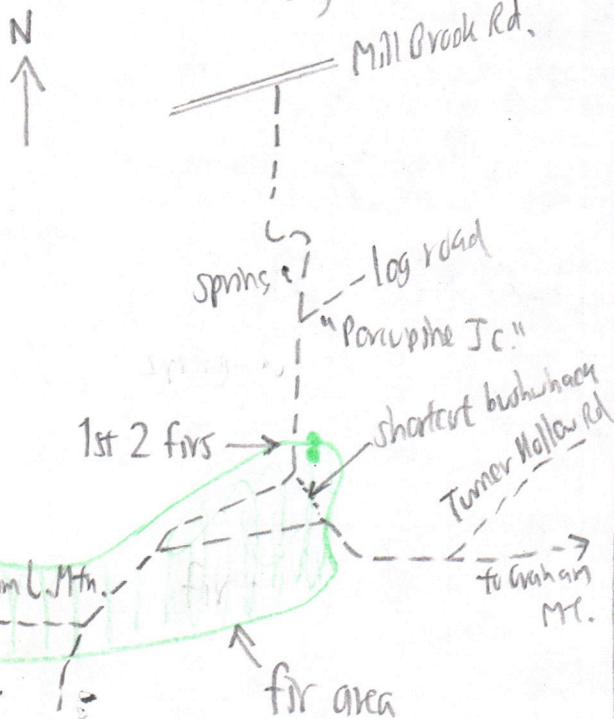 N
Mill Brook Rd.
spring
log road
"Porcupine Jc."
1st 2 firs
shortcut bushwhack
Turner Hollow Rd
L. Mtn.
fir
to Graham
Mt.
fir area